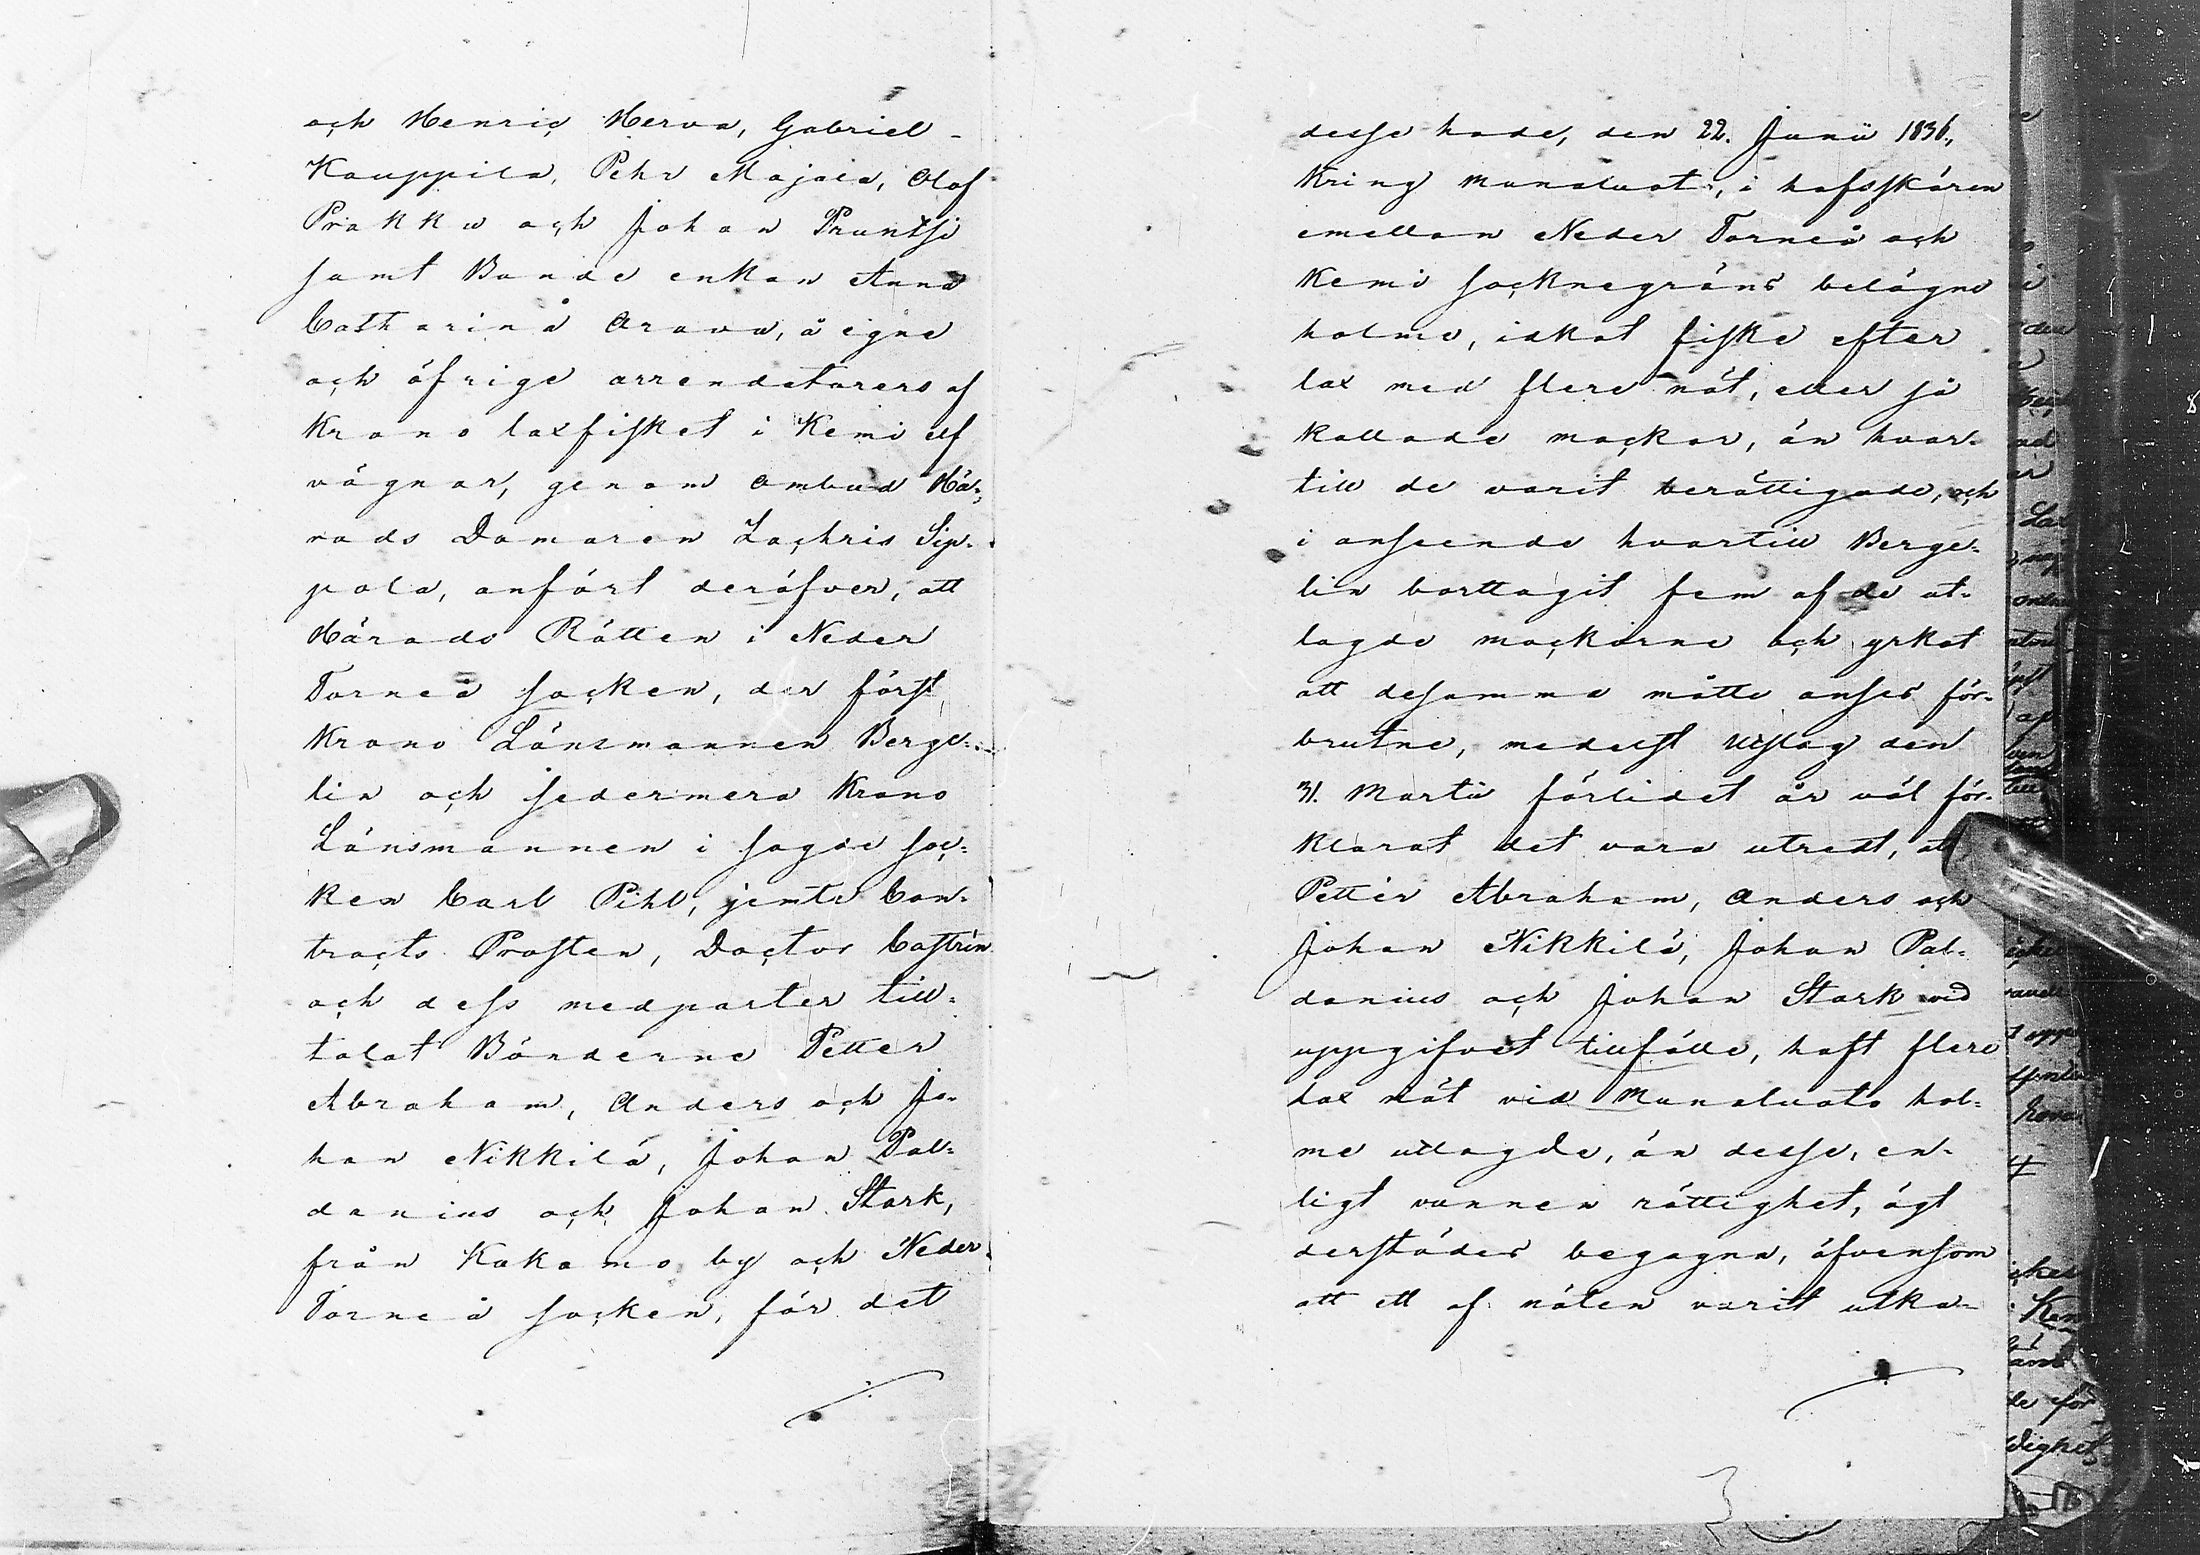 och Henric Herva, Gabriel
Kauppila, Pehr Majala, Olof
Prakku och Johan Pruntsi
samt Bonde enkan Anna
Catharina Arava, å egne
och öfrige arrendatorers af
Krono laxfisket i Kemi elf
vägnar, genom ombud Hä-
rads Domaren Zachris Sip-
pola, anfört deröfver, att
Härads Rätten i Neder
Torneå socken, der först
Krono Länsmannen Berge-
lin och sedermera Krono
Länsmannen i sagde soc-
ken Carl Pihl, jemte Con-
tracts Prosten, Doctor Castrén
och dess medparter till-
talat Bönderne Petter
Abraham, Anders och Jo-
han Nikkilä, Johan Pal-
danius och Johan Stark,
från Kakamo by och Neder
Torneå socken, för det
desse hade, den 22. Junii 1836,
kring Munaluoto, i hafsskären
emellan Neder Torneå och
Kemi socknegräns belägne
holme, idkat fiske efter
lax med flere nät, eller så
kallade mockor, än hvar-
till de varit berättigade, och
i anseende hvartill Berge-
lin borttagit fem af de ut-
lagde mockorne och yrkat
att desamma måtte anses för-
brutne, medelst Utslag den
31. Martii förlidet år väl för-
klarat det vara utredt, att
Petter Abraham, Anders och
Johan Nikkilä, Johan Pal-
danius och Johan Stark vid
uppgifvet tillfälle, haft flere
lax nät vid Munaluoto hol-
me utlagde, än desse, en-
ligt vunnen rättighet, ägt
derstädes begagna, äfvensom
att ett af näten varit utka-